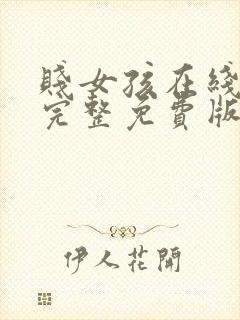 賤女孩在綫
完整免費版
伊人花開